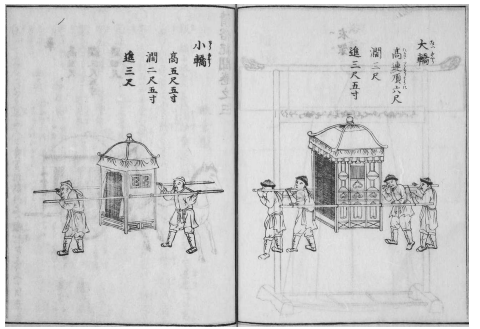 大轎
高連頂六尺
濶三尺
進三尺五寸
小轎
高五尺五寸
濶二尺五寸
進三尺